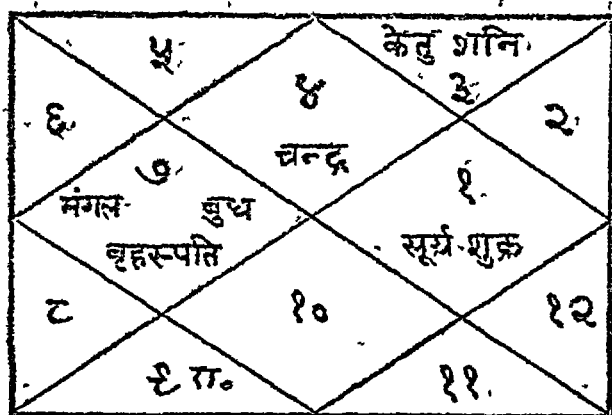 ५
केतु शनि
३
४
६
२
चन्द्र
७
१
मंगल बुध
बृहस्पति
सूर्य शुक्र
८
१०
१२
९ रा०
११